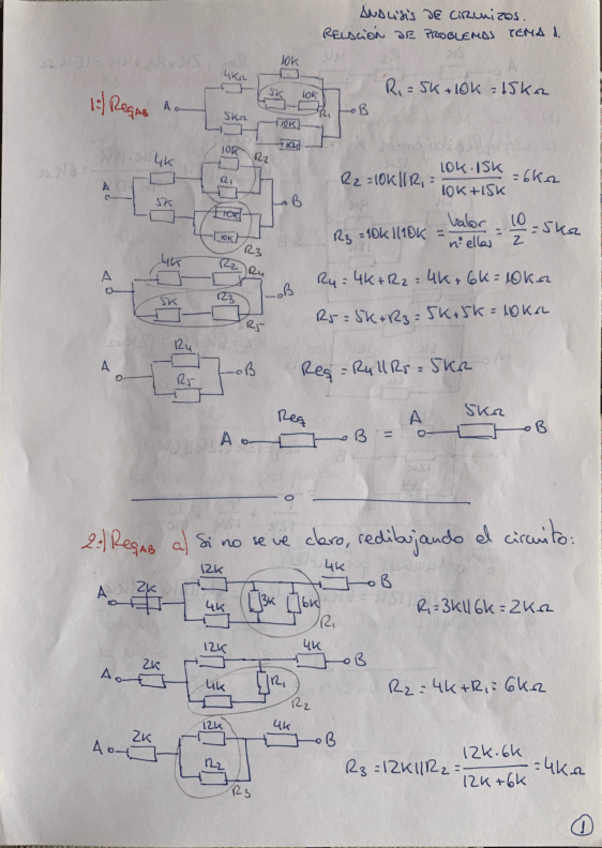 ANALISIS DE CIRCUITOS.
RELACIÓN DE PROBLEMAS TEMA 1.
1º) ReqAB
A 4KΩ 10K 5K 10K R1 B
5KΩ 10K 10K
R1 = 5K + 10K = 15KΩ
A 4K 10K R2 R1 B
5K 10K 10K R3
R2 = 10K || R1 = 10K · 15K / 10K + 15K = 6KΩ
R3 = 10K || 10K = valor / nº ellas = 10 / 2 = 5KΩ
A 4K R2 R4 B
5K R3 R5
R4 = 4K + R2 = 4K + 6K = 10KΩ
R5 = 5K + R3 = 5K + 5K = 10KΩ
A R4 B
R5
Req = R4 || R5 = 5KΩ
A Req B = A 5KΩ B
2º) ReqAB a) Si no se ve claro, redibujando el circuito:
A 2K 12K 4K B
4K 3K 6K R1
R1 = 3K || 6K = 2KΩ
A 2K 12K 4K B
4K R1 R2
R2 = 4K + R1 = 6KΩ
A 2K 12K 4K B
R2 R3
R3 = 12K || R2 = 12K · 6K / 12K + 6K = 4KΩ
1